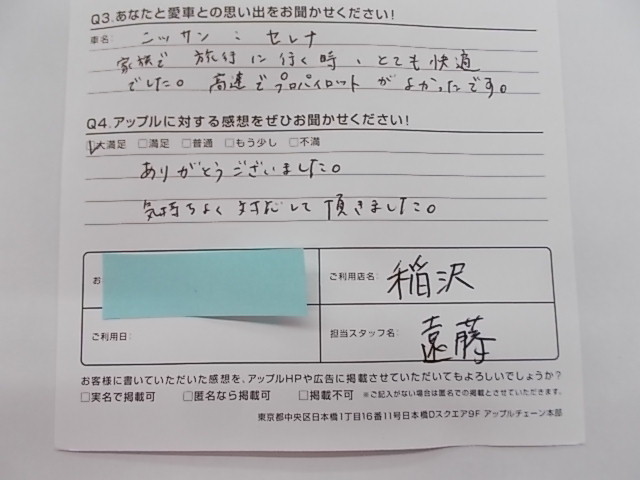 Q3.あなたと愛車との思い出をお聞かせください!
車名: ニッサン : セレナ
家族で 旅行に行く時、とても快適
でした。 高速でプロパイロットがよかったです。
Q4.アップルに対する感想をぜひお聞かせください!
☑大満足 □満足 □普通 □もう少し □不満
ありがとうございました。
気持ちよく対応して頂きました。
お
ご利用店名: 稲沢
ご利用日:
担当スタッフ名: 遠藤
お客様に書いていただいた感想を、アップルHPや広告に掲載させていただいてもよろしいでしょうか?
□実名で掲載可 □匿名なら掲載可 □掲載不可 ※ご記入がない場合は匿名での掲載とさせていただきます。
東京都中央区日本橋1丁目16番11号日本橋Dスクエア9F アップルチェーン本部